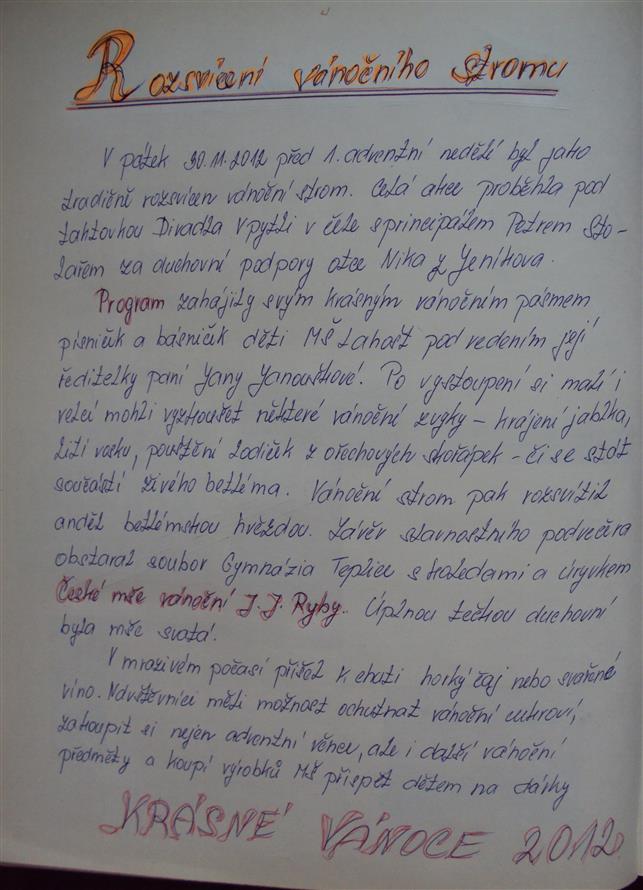 Rozsvícení vánočního stromu
V pátek 30.11.2012 před 1. adventní nedělí byl jako
tradičně rozsvícen vánoční strom. Celá akce proběhla pod
taktovkou Divadla V pytli v čele s principálem Petrem Sto-
lařem za duchovní podpory otce Nika z Jeníkova.
Program zahájily svým krásným vánočním pásmem
písniček a básniček děti MŠ Lahošť pod vedením její
ředitelky paní Jany Janouškové. Po vystoupení si malí i
velcí mohli vyzkoušet některé vánoční zvyky - krájení jablka,
lití vosku, pouštění lodiček z ořechových skořápek - či se stát
součástí živého betléma. Vánoční strom pak rozsvítil
anděl betlémskou hvězdou. Závěr slavnostního podvečera
obstaral soubor Gymnázia Teplice s koledami a úryvkem
České mše vánoční J. J. Ryby. Úplnou tečkou duchovní
byla mše svatá.
V mrazivém počasí přišel k chuti horký čaj nebo svařené
víno. Návštěvníci měli možnost ochutnat vánoční cukroví,
zakoupit si nejen adventní věnce, ale i další vánoční
předměty a koupí výrobků MŠ přispět dětem na dárky
KRÁSNÉ VÁNOCE 2012